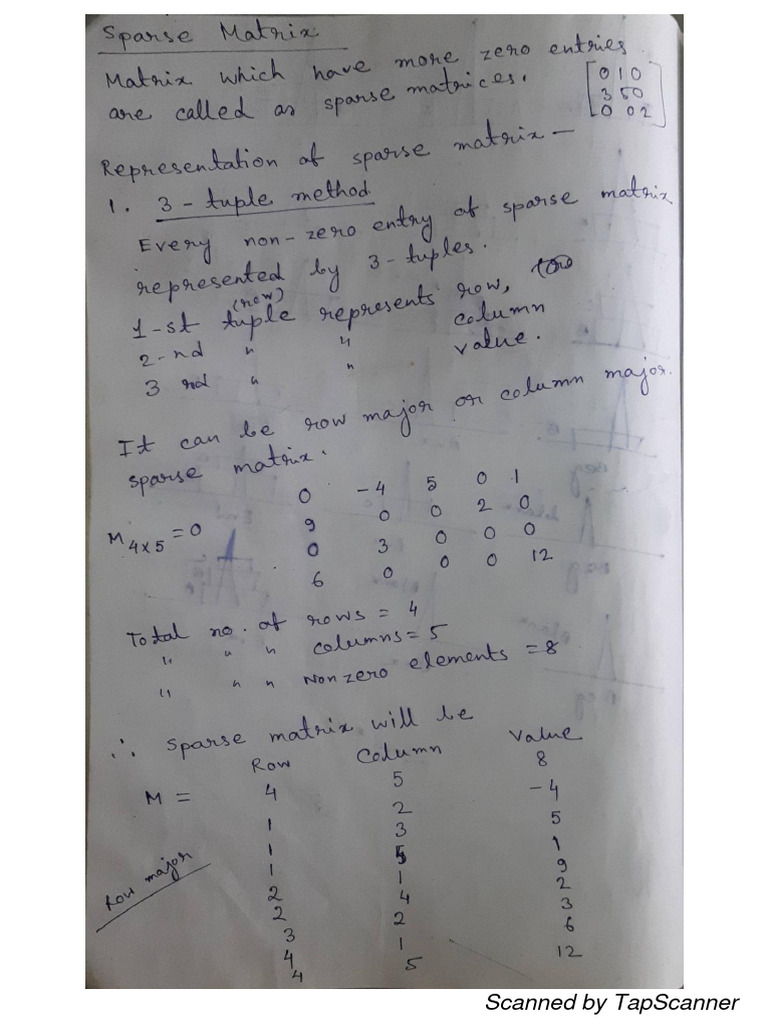 Sparse Matrix
Matrix which have more zero entries
are called as sparse matrices.
[0 1 0
3 5 0
0 0 2]
Representation of sparse matrix —
1. 3 - tuple method
Every non-zero entry of sparse matrix
represented by 3-tuples.
(row)
1-st tuple represents row,
2-nd " " column
3 nd " " value.
It can be row major or column major.
sparse matrix.
0 -4 5 0 1
M4x5 = 0 9 0 0 2 0
0 3 0 0 0
6 0 0 0 12
Total no. of rows = 4
" " " columns = 5
" " " Non zero elements = 8
∴ Sparse matrix will be
Row Column Value
M = 4 5 8
1 2 -4
1 3 5
1 5 1
2 1 9
2 4 2
3 2 3
4 1 6
4 5 12
Row major
Scanned by TapScanner